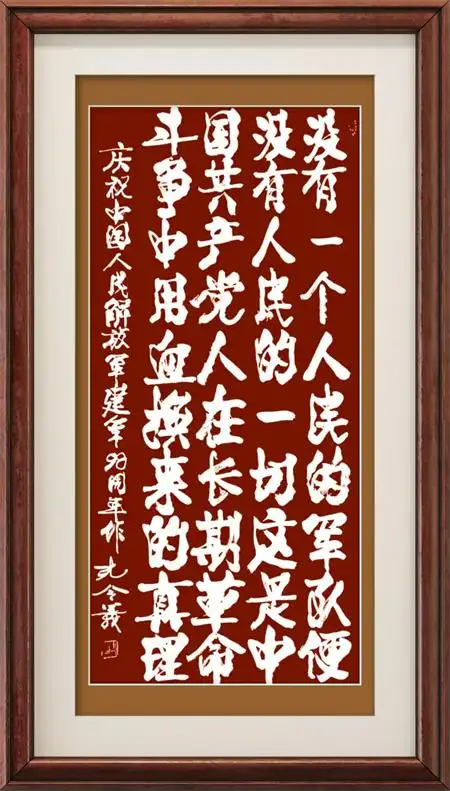 没有一个人民的军队便
没有人民的一切这是中
国共产党人在长期革命
斗争中用血换来的真理
庆祝中国人民解放军建军99周年作 孔令义